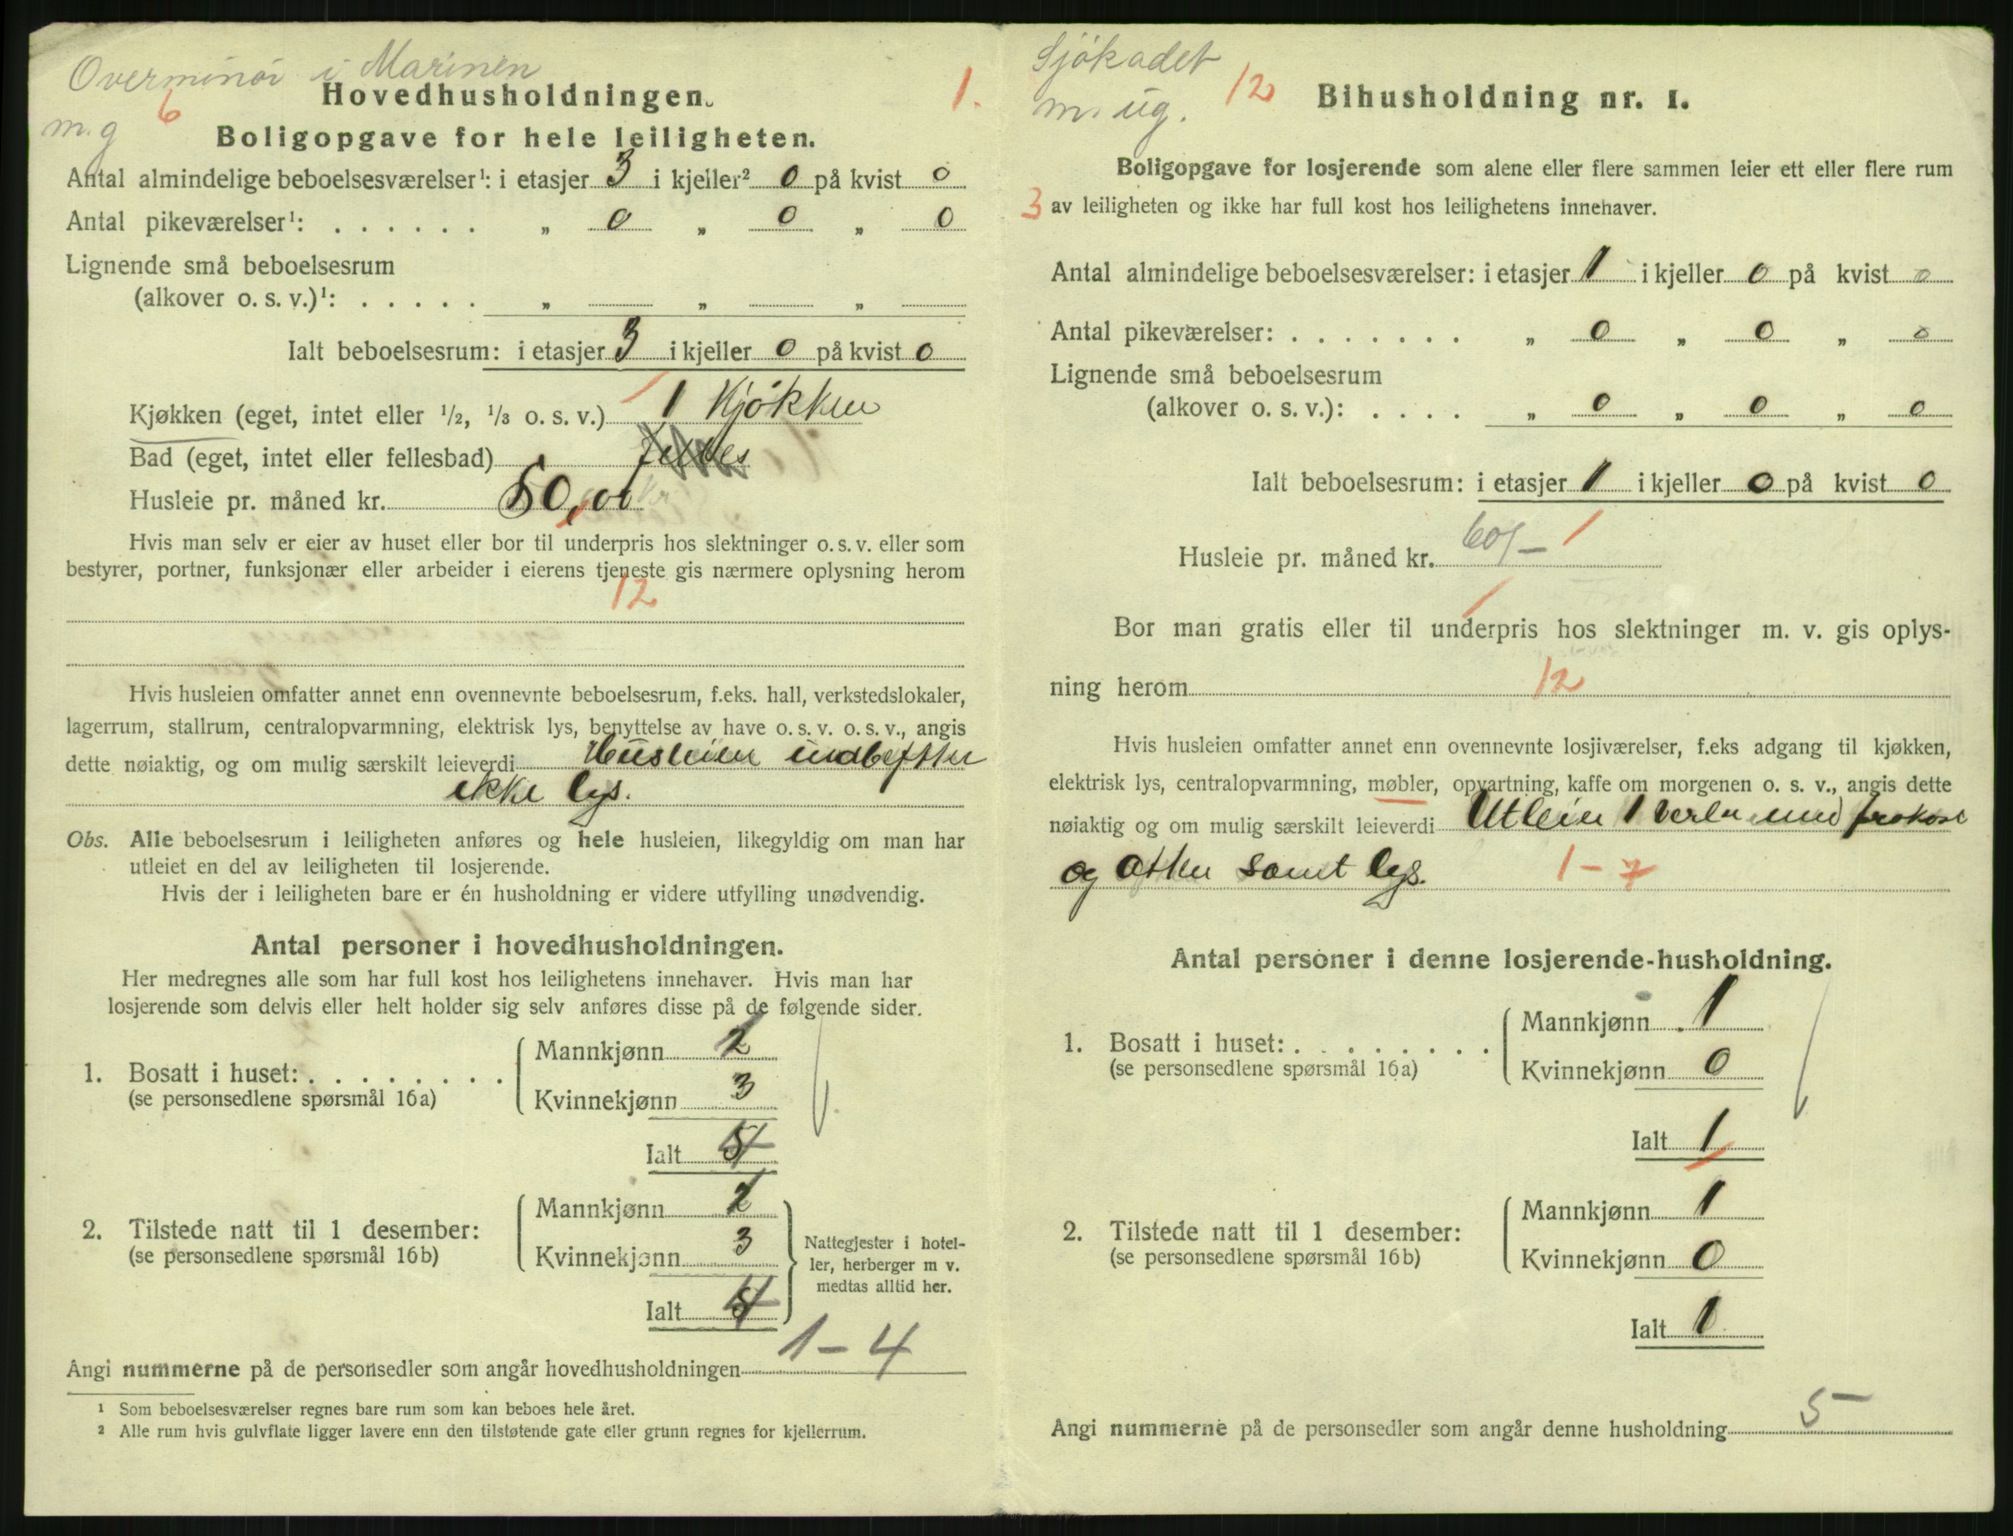 Overminør i Marinen
6
m.g
Hovedhusholdningen.
1.
Boligopgave for hele leiligheten.
Antal almindelige beboelsesværelser¹: i etasjer 3 i kjeller² 0 på kvist 0
Antal pikeværelser¹: . . . . . . „ 0 „ 0 „ 0
Lignende små beboelsesrum
(alkover o. s. v.)¹: . . . . . „ „ „
Ialt beboelsesrum: i etasjer 3 i kjeller 0 på kvist 0
Kjøkken (eget, intet eller 1/2, 1/3 o. s. v.) 1 Kjøkken
Bad (eget, intet eller fellesbad)
Husleie pr. måned kr. 50,00
Hvis man selv er eier av huset eller bor til underpris hos slektninger o. s. v. eller som
bestyrer, portner, funksjonær eller arbeider i eierens tjeneste gis nærmere oplysning herom
12
Hvis husleien omfatter annet enn ovennevnte beboelsesrum, f.eks. hall, verkstedslokaler,
lagerrum, stallrum, centralopvarmning, elektrisk lys, benyttelse av have o. s. v. o. s. v., angis
dette nøiaktig, og om mulig særskilt leieverdi Husleien indbefatter
ikke lys.
Obs. Alle beboelsesrum i leiligheten anføres og hele husleien, likegyldig om man har
utleiet en del av leiligheten til losjerende.
Hvis der i leiligheten bare er én husholdning er videre utfylling unødvendig.
Antal personer i hovedhusholdningen.
Her medregnes alle som har full kost hos leilighetens innehaver. Hvis man har
losjerende som delvis eller helt holder sig selv anføres disse på de følgende sider.
1. Bosatt i huset: . . . . . . . . .
(se personsedlene spørsmål 16a)
Mannkjønn 1
Kvinnekjønn 3
Ialt 4
2. Tilstede natt til 1 desember:
(se personsedlene spørsmål 16b)
Mannkjønn 1
Kvinnekjønn 3
Ialt 4
Nattegjester i hotel-
ler, herberger m v.
medtas alltid her.
Angi nummerne på de personsedler som angår hovedhusholdningen 1 – 4
¹ Som beboelsesværelser regnes bare rum som kan beboes hele året.
² Alle rum hvis gulvflate ligger lavere enn den tilstøtende gate eller grunn regnes for kjellerrum.
Sjökadet
m. ug.
12
Bihusholdning nr. 1.
Boligopgave for losjerende som alene eller flere sammen leier ett eller flere rum
3 av leiligheten og ikke har full kost hos leilighetens innehaver.
Antal almindelige beboelsesværelser: i etasjer 1 i kjeller 0 på kvist 0
Antal pikeværelser: . . . . . . . „ 0 „ 0 „ 0
Lignende små beboelsesrum
(alkover o. s. v.): . . . . „ 0 „ 0 „ 0
Ialt beboelsesrum: i etasjer 1 i kjeller 0 på kvist 0
Husleie pr. måned kr. 60,- 1
Bor man gratis eller til underpris hos slektninger m. v. gis oplys-
ning herom 12
Hvis husleien omfatter annet enn ovennevnte losjiværelser, f.eks adgang til kjøkken,
elektrisk lys, centralopvarmning, møbler, opvartning, kaffe om morgenen o. s. v., angis dette
nøiaktig og om mulig særskilt leieverdi Utleier 1 med frokost
og samt lys. 1 – 7
Antal personer i denne losjerende-husholdning.
1. Bosatt i huset: . . . . . . . . .
(se personsedlene spørsmål 16a)
Mannkjønn 1
Kvinnekjønn 0
Ialt 1
2. Tilstede natt til 1 desember:
(se personsedlene spørsmål 16b)
Mannkjønn 1
Kvinnekjønn 0
Ialt 1
Angi nummerne på de personsedler som angår denne husholdning 5